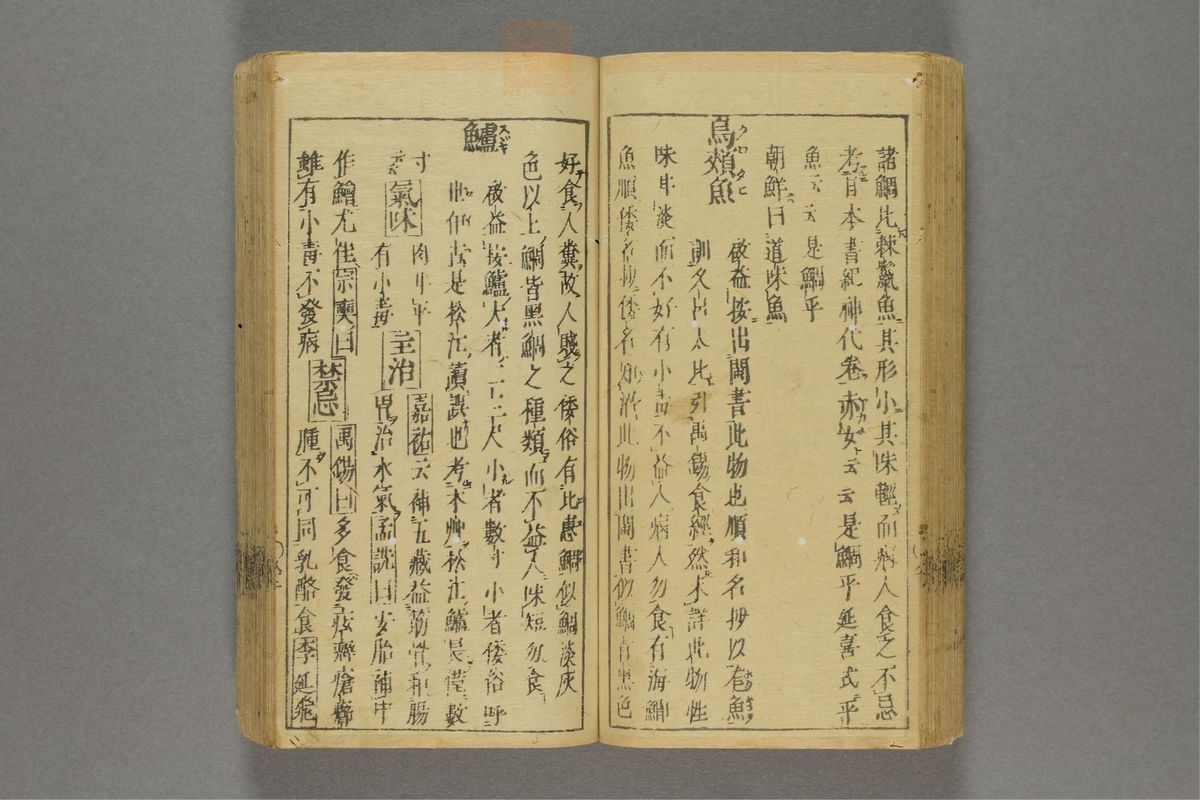 諸鯛比棘鬣魚其形小其味輕而病人食之不忌
考日本書紀神代卷赤女云云是鯛乎延喜式平
魚云云是鯛乎
朝鮮曰道味魚
烏頰魚
啟益按出閩書此物也順和名抄以魚
訓久呂太比引禹錫食經然未詳此物性
味甘淡而不好有小毒不益人病人勿食有海鯽
魚順倭名抄倭名此物出閩書似鯛青黑色
好食人糞故人賤之倭俗有比惠鯛似鯛淡灰
色以上鯛皆黑鯛之種類而不益人味短勿食
鱸
啟益按鱸大者二三尺小者數寸小者倭俗呼
世伊古是松江鱸也考本艸松江鱸長僅數
寸云云
氣味
肉甘平
有小毒
主治
嘉祐云補五藏益筋骨和腸
胃治水氣孟詵曰安胎補中
作鱠尤佳宗奭曰
雖有小毒不發病
禁忌
禹錫曰多食發痃癖瘡癤
腫不可同乳酪食李延飛